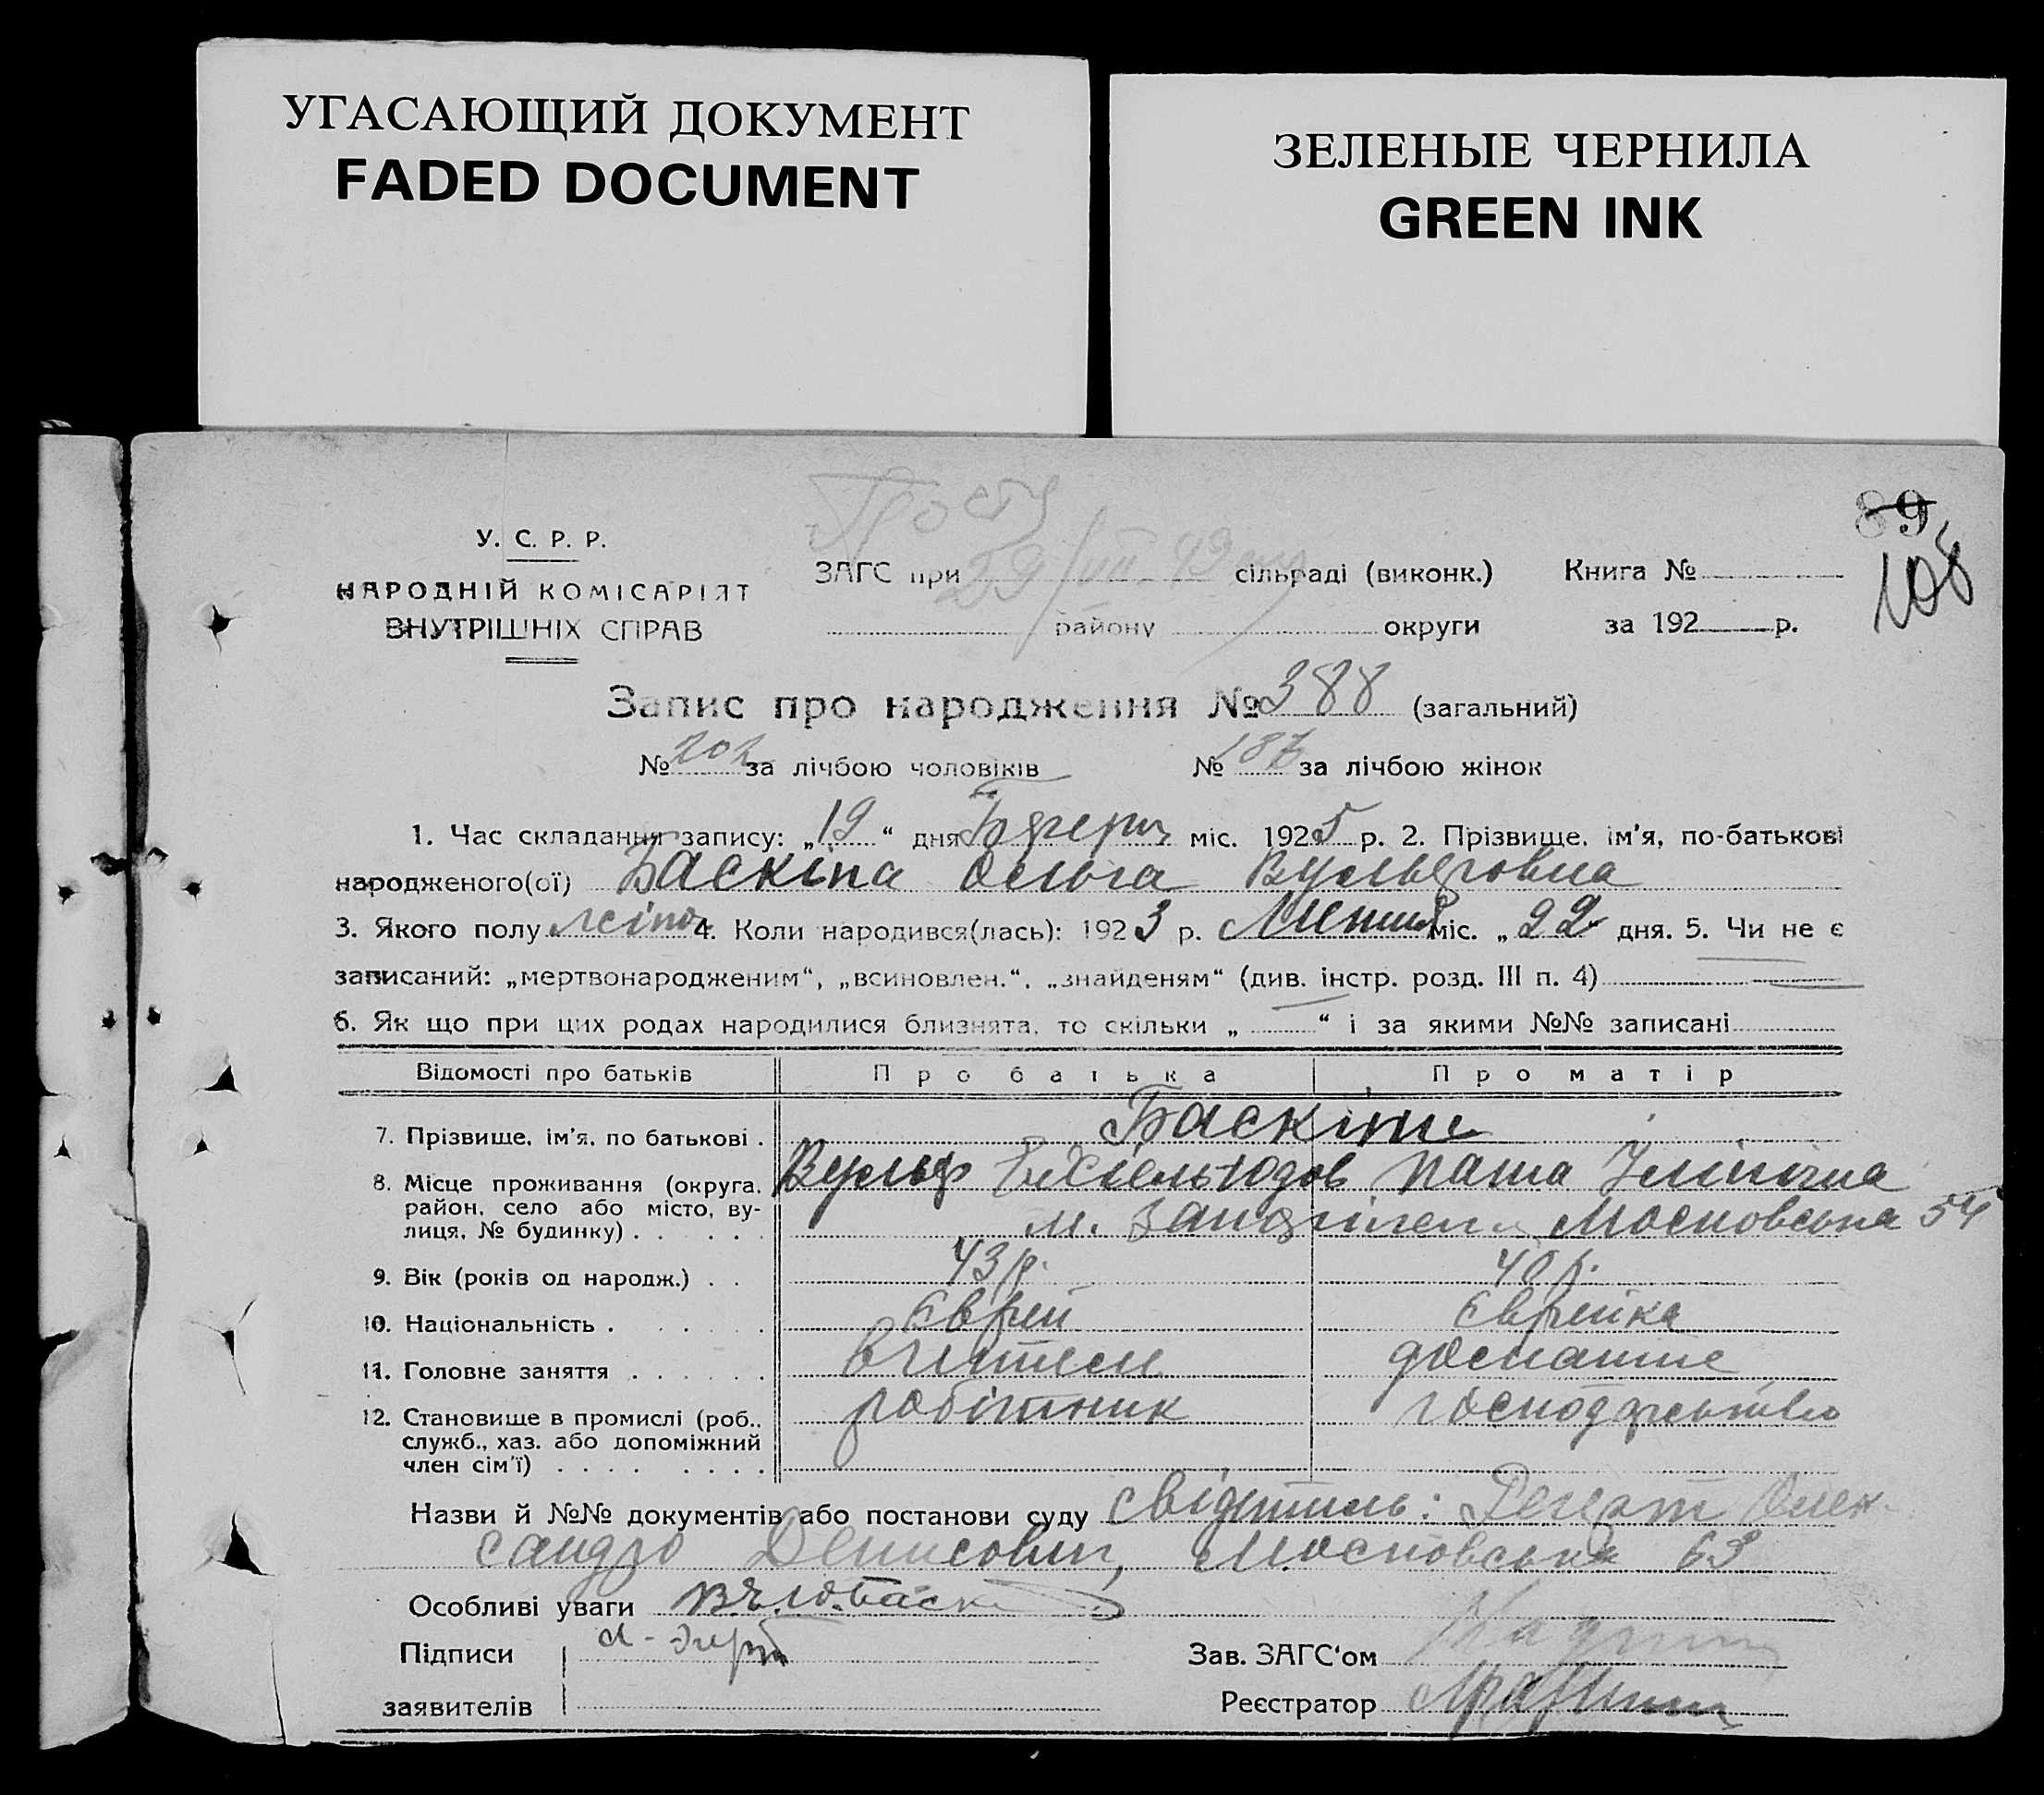 УГАСАЮЩИЙ ДОКУМЕНТ
FADED DOCUMENT
ЗЕЛЕНЫЕ ЧЕРНИЛА
GREEN INK
89
108
У. С. Р. Р.
НАРОДНІЙ КОМІСАРІЯТ
ВНУТРІШНІХ СПРАВ
29/VIII 49
ЗАГС при сільраді (виконк.) Книга №
району округи за 192 р.
Запис про народження № 388 (загальний)
№ 202 за лічбою чоловіків № 187 за лічбою жінок
1. Час складання запису: „19“ дня міс. 1925 р. 2. Прізвище, ім'я, по-батькові
народженого(ої) Баскіна Ольга Вульфовна
3. Якого полу жіноч 4. Коли народився(лась): 1923 р. Липня міс. „22 дня. 5. Чи не є
записаний: „мертвонародженим“, „всиновлен.“, „знайденям“ (див. інстр. розд. III п. 4)
6. Як що при цих родах народилися близнята, то скільки „ “ і за якими №№ записані
Відомості про батьків Про батька Про матір
7. Прізвище, ім'я, по батькові . Баскіни
8. Місце проживання (округа, Вульф
район, село або місто, ву-
лиця, № будинку) . . . . . . м. Московська 54
9. Вік (років од народж.) . . 43 р. 40 р.
10. Національність . . . . . . Єврей Єврейка
11. Головне заняття . . . . . . Вчитель домашне
12. Становище в промислі (роб., робітник господарство
служб., хаз. або допоміжний
член сім'ї) . . . . . . . .
Назви й №№ документів або постанови суду свідитель: Олек-
сандр Денисович, Московська 63
Особливі уваги
Підписи Зав. ЗАГС'ом
заявителів Реєстратор